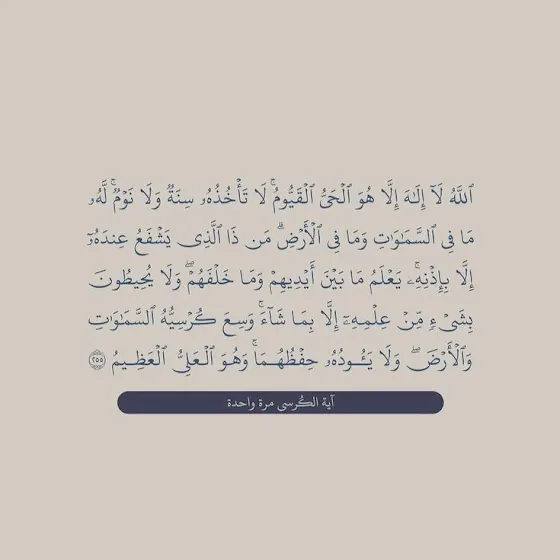 ٱللَّهُ لَآ إِلَٰهَ إِلَّا هُوَ ٱلْحَىُّ ٱلْقَيُّومُ ۚ لَا تَأْخُذُهُۥ سِنَةٌ وَلَا نَوْمٌ ۚ لَّهُۥ
مَا فِى ٱلسَّمَٰوَٰتِ وَمَا فِى ٱلْأَرْضِ ۗ مَن ذَا ٱلَّذِى يَشْفَعُ عِندَهُۥٓ
إِلَّا بِإِذْنِهِۦ ۚ يَعْلَمُ مَا بَيْنَ أَيْدِيهِمْ وَمَا خَلْفَهُمْ ۖ وَلَا يُحِيطُونَ
بِشَىْءٍ مِّنْ عِلْمِهِۦٓ إِلَّا بِمَا شَآءَ ۚ وَسِعَ كُرْسِيُّهُ ٱلسَّمَٰوَٰتِ
وَٱلْأَرْضَ ۖ وَلَا يَـُٔودُهُۥ حِفْظُهُمَا ۚ وَهُوَ ٱلْعَلِىُّ ٱلْعَظِيمُ ۝٢٥٥
آية الكُرسى مرة واحدة